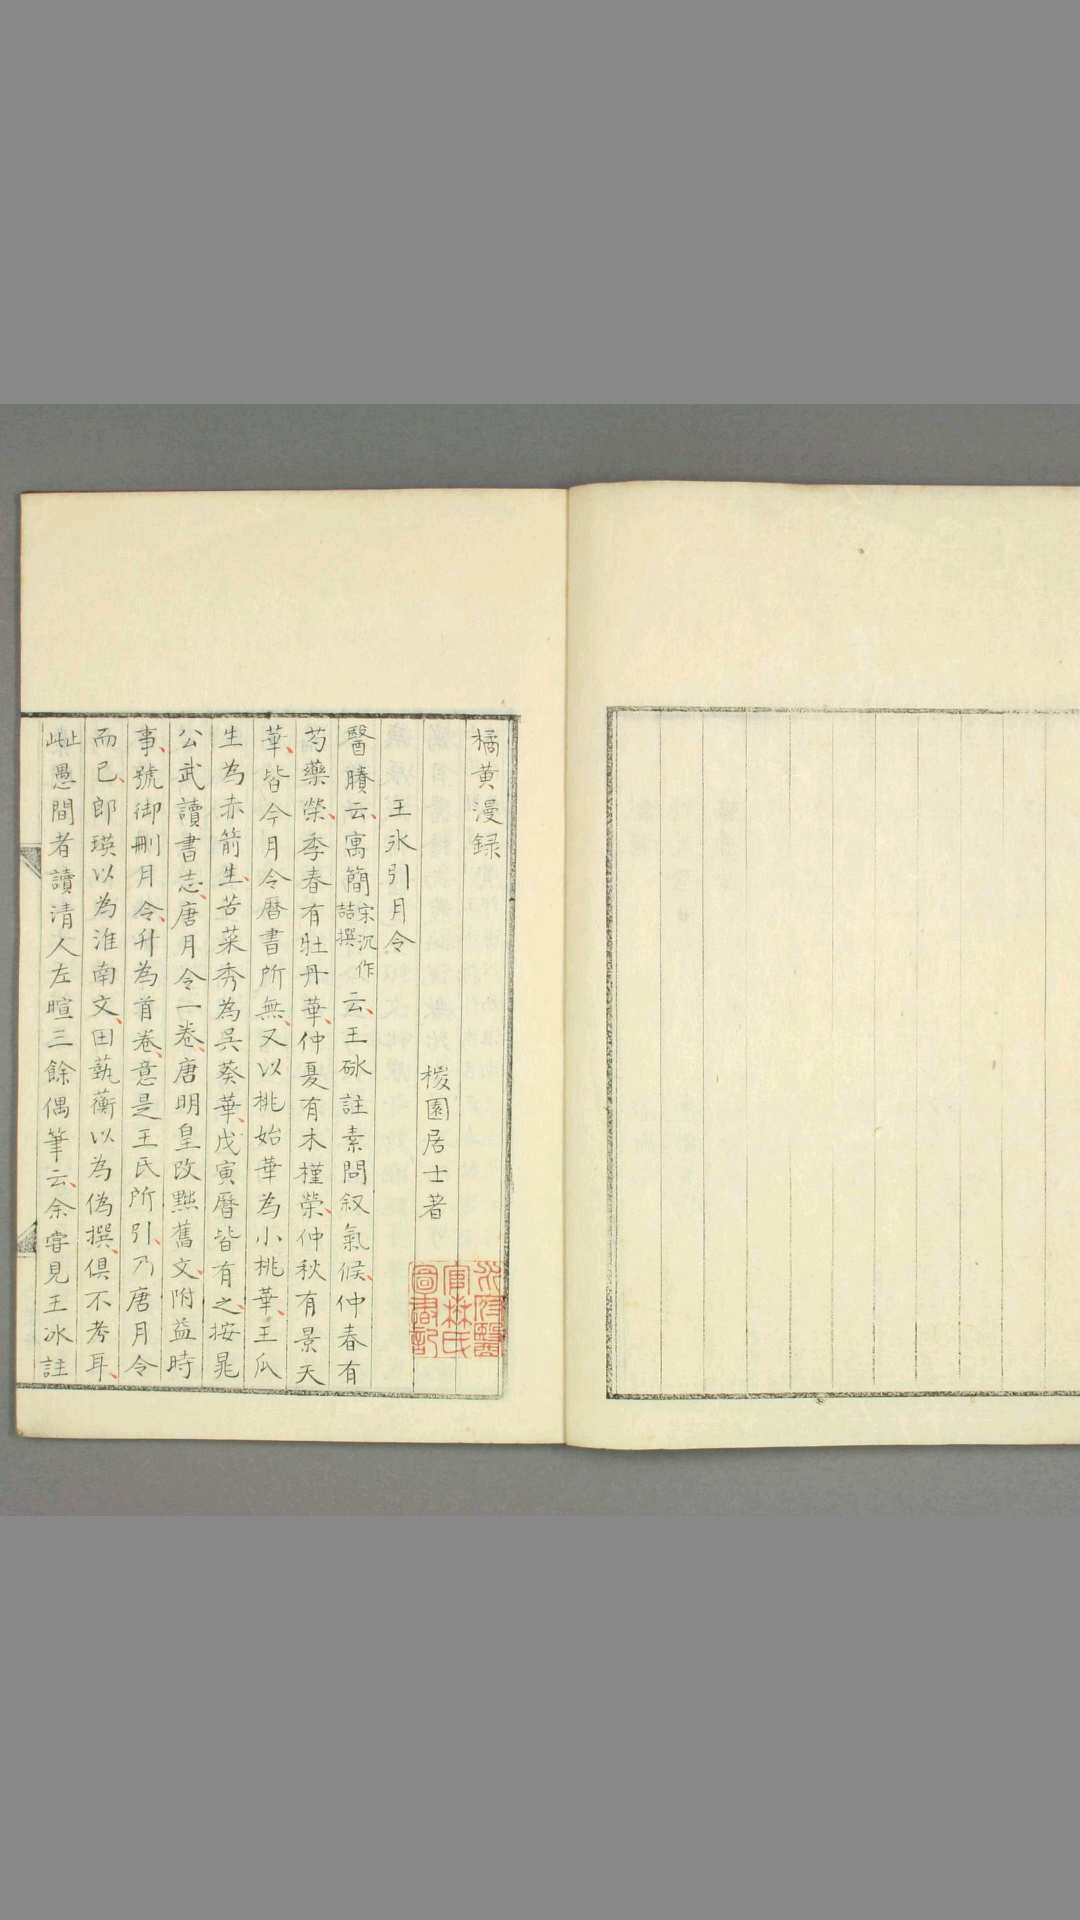 橘黄漫録
椶園居士著
王氷引月令
醫賸云寓簡宋沉作喆撰云王砅註素問叙氣候仲春有
芍藥榮季春有牡丹華仲夏有木槿榮仲秋有景天
華皆今月令曆書所無又以桃始華為小桃華王瓜
生為赤箭生苦菜秀為吳葵華戊寅曆皆有之按晁
公武讀書志唐月令一卷唐明皇改黙舊文附益時
事號御刪月令升為首卷意是王氏所引乃唐月令
而已郎瑛以為淮南文田藝蘅以為偽撰俱不考耳
此愚間者讀清人左暄三餘偶筆云余嘗見王冰註
氏醫官林氏圖書記